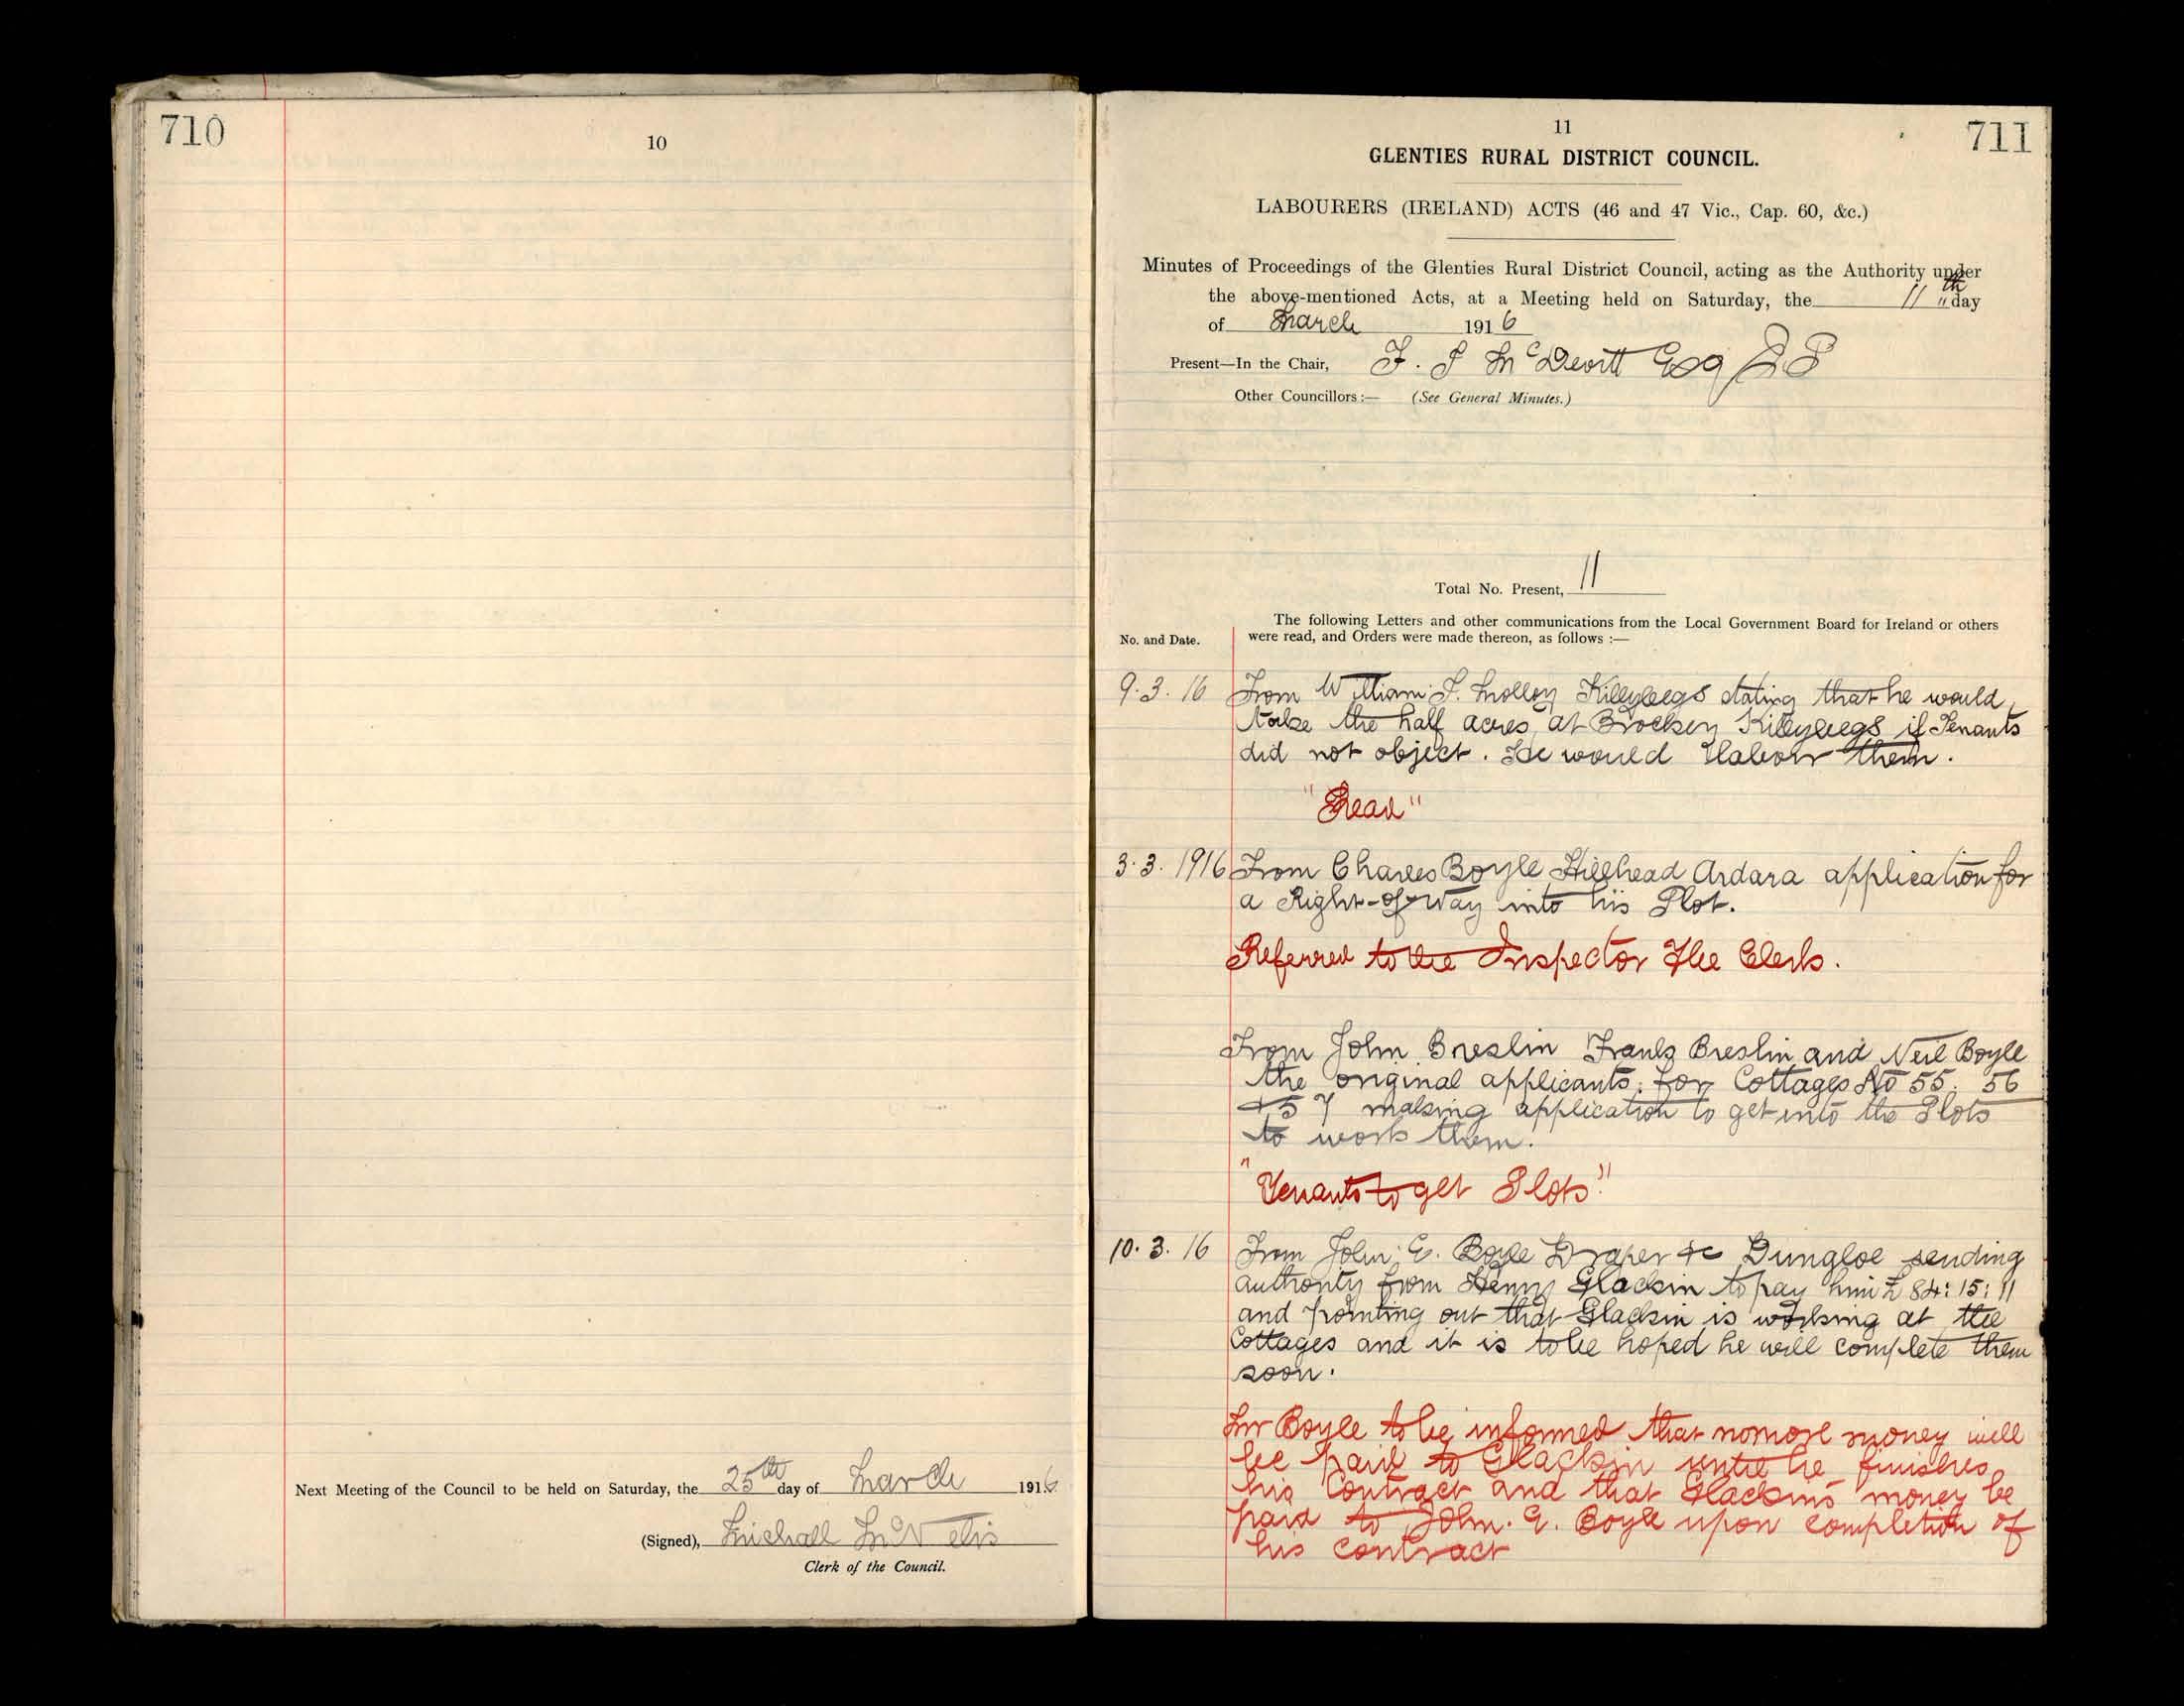 710
10
Next Meeting of the Council to be held on Saturday, the 25th day of March 1916
(Signed), Michall McNelis
Clerk of the Council.
11
711
GLENTIES RURAL DISTRICT COUNCIL.
LABOURERS (IRELAND) ACTS (46 and 47 Vic., Cap. 60, &c.)
Minutes of Proceedings of the Glenties Rural District Council, acting as the Authority under
the above-mentioned Acts, at a Meeting held on Saturday, the 11th day
of March 1916
Present—In the Chair, F. P McDevitt Esq JP
Other Councillors:— (See General Minutes.)
Total No. Present, 11
The following Letters and other communications from the Local Government Board for Ireland or others
No. and Date. were read, and Orders were made thereon, as follows :—
9.3.16 From William P. Molloy Killybegs stating that he would
take the half acres at Brocken Killybegs if Tenants
did not object. He would labour them.
"Read"
3.3.1916 From Charles Boyle Hillhead Ardara application for
a Right-of-Way into his Plot.
Referred to the Inspector The Clerk.
From John Breslin Frank Breslin and Neil Boyle
the original applicants for Cottages No 55. 56
+57 making application to get into the Plots
to work them.
"Tenants to get Plots"
10.3.16 From John E. Boyle Draper &c Dungloe sending
authority from Henry Glackin to pay him £84:15:11
and pointing out that Glackin is working at the
Cottages and it is to be hoped he will complete them
soon.
Mr Boyle to be informed that no more money will
be paid to Glackin until he finishes
his Contract and that Glackins money be
paid to John. E. Boyle upon completion of
his contract